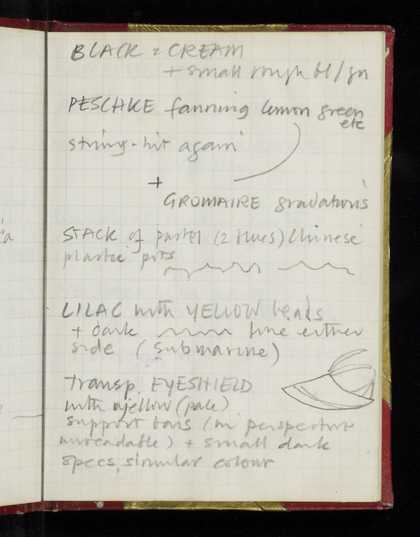 BLACK & CREAM
+ small rough bl/gn
PESCHKE fanning lemon green
etc
string-hit again
+
GROMAIRE gradations
STACK of pastel (2 blues) Chinese
plastic pots
LILAC with YELLOW beads
+ dark line either
side (submarine)
Transp. EYESHIELD
with yellow (pale)
support bars (in perspective
unreadable) + small dark
specs, similar colour